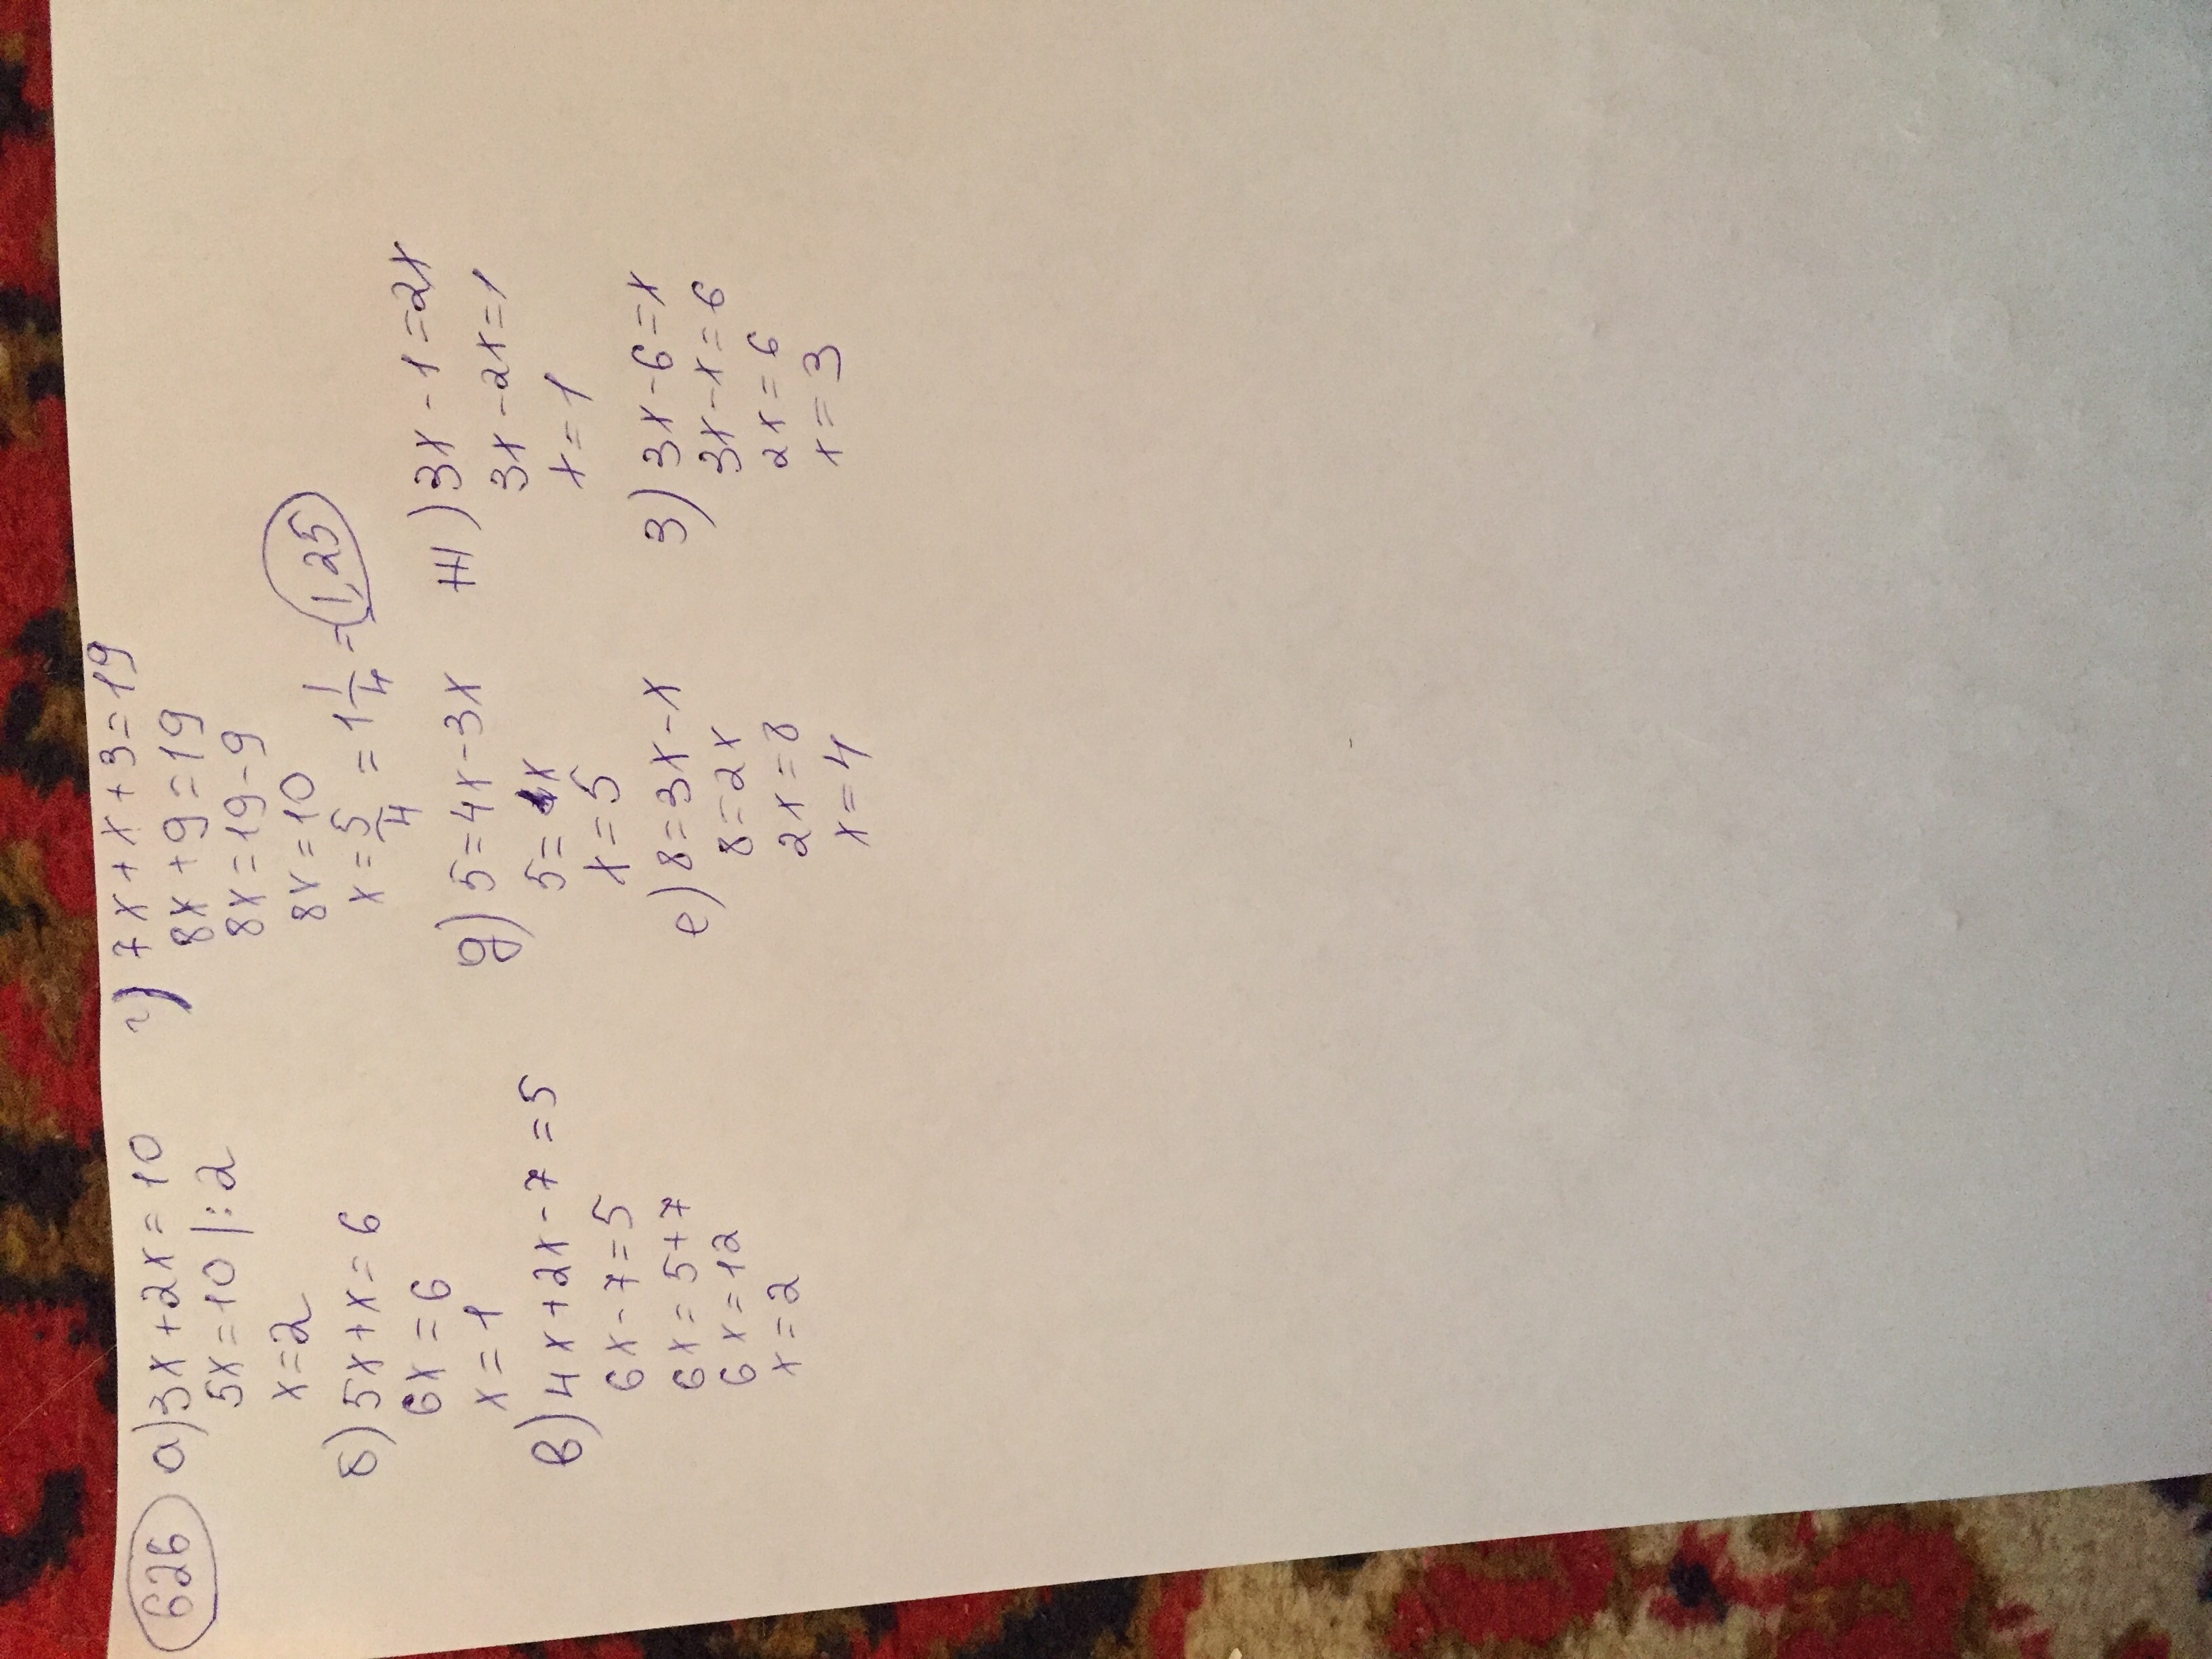 626 а) 3x + 2x = 10
5x = 10 |: 2
x = 2
б) 5x + x = 6
6x = 6
x = 1
в) 4x + 2x - 7 = 5
6x - 7 = 5
6x = 5 + 7
6x = 12
x = 2
г) 7x + x + 3 = 19
8x + 9 = 19
8x = 19 - 9
8x = 10
x = 5/4 = 1 1/4 = 1,25
д) 5 = 4x - 3x
5 = x
x = 5
е) 8 = 3x - x
8 = 2x
2x = 8
x = 4
ж) 3x - 1 = 2x
3x - 2x = 1
x = 1
з) 3x - 6 = x
3x - x = 6
2x = 6
x = 3